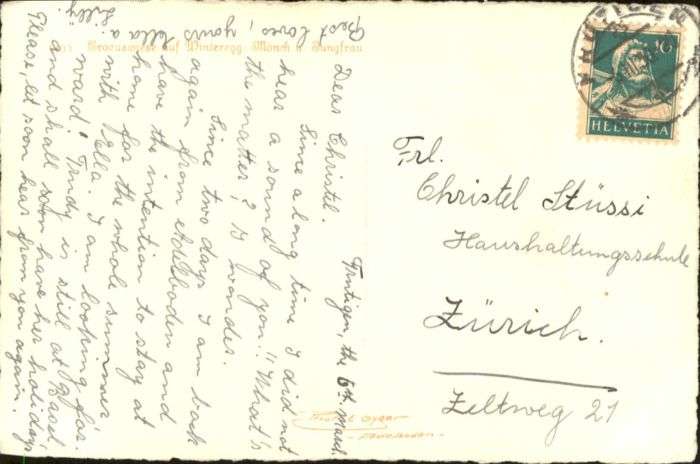 Frutigen, the 6th March.
Dear Christel.
Since a long time I did not
hear a sound of you!! What's
the matter, I wonder.
Since two days I am back
again from Adelboden and
have the intention to stay at
home for the whole summer
with Ella. I am looking for-
ward! Trudy is still at Basel,
and shall soon have her holidays
Please, let soon hear from you again.
Best loves, yours Ella a.
Lilly.
Crocuswiese auf Winteregg Mönch u. Jungfrau
HELVETIA
Frl.
Christel Stüssi
Haushaltungsschule
Zürich.
Zeltweg 21